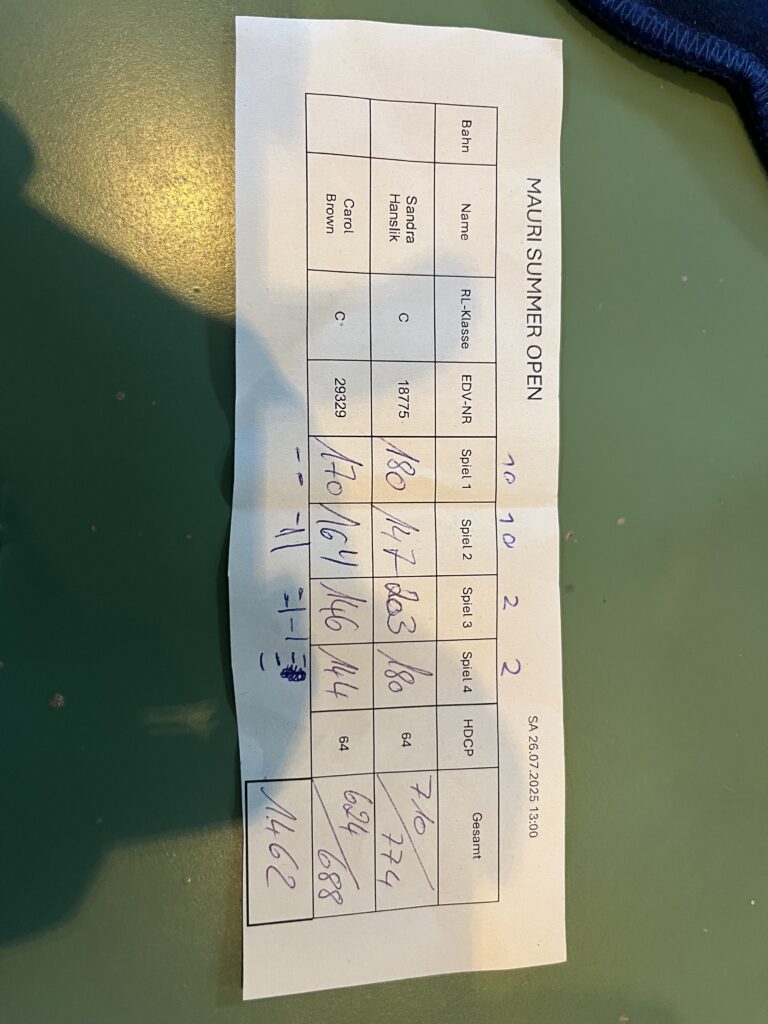 MAURI SUMMER OPEN SA 26.07.2025 13:00
10 10 2 2
Bahn Name RL-Klasse EDV-NR Spiel 1 Spiel 2 Spiel 3 Spiel 4 HDCP Gesamt
Sandra Hanslik C 18775 180 147 203 180 64 710/774
Carol Brown C 29329 170 164 146 144 64 624/688
1462